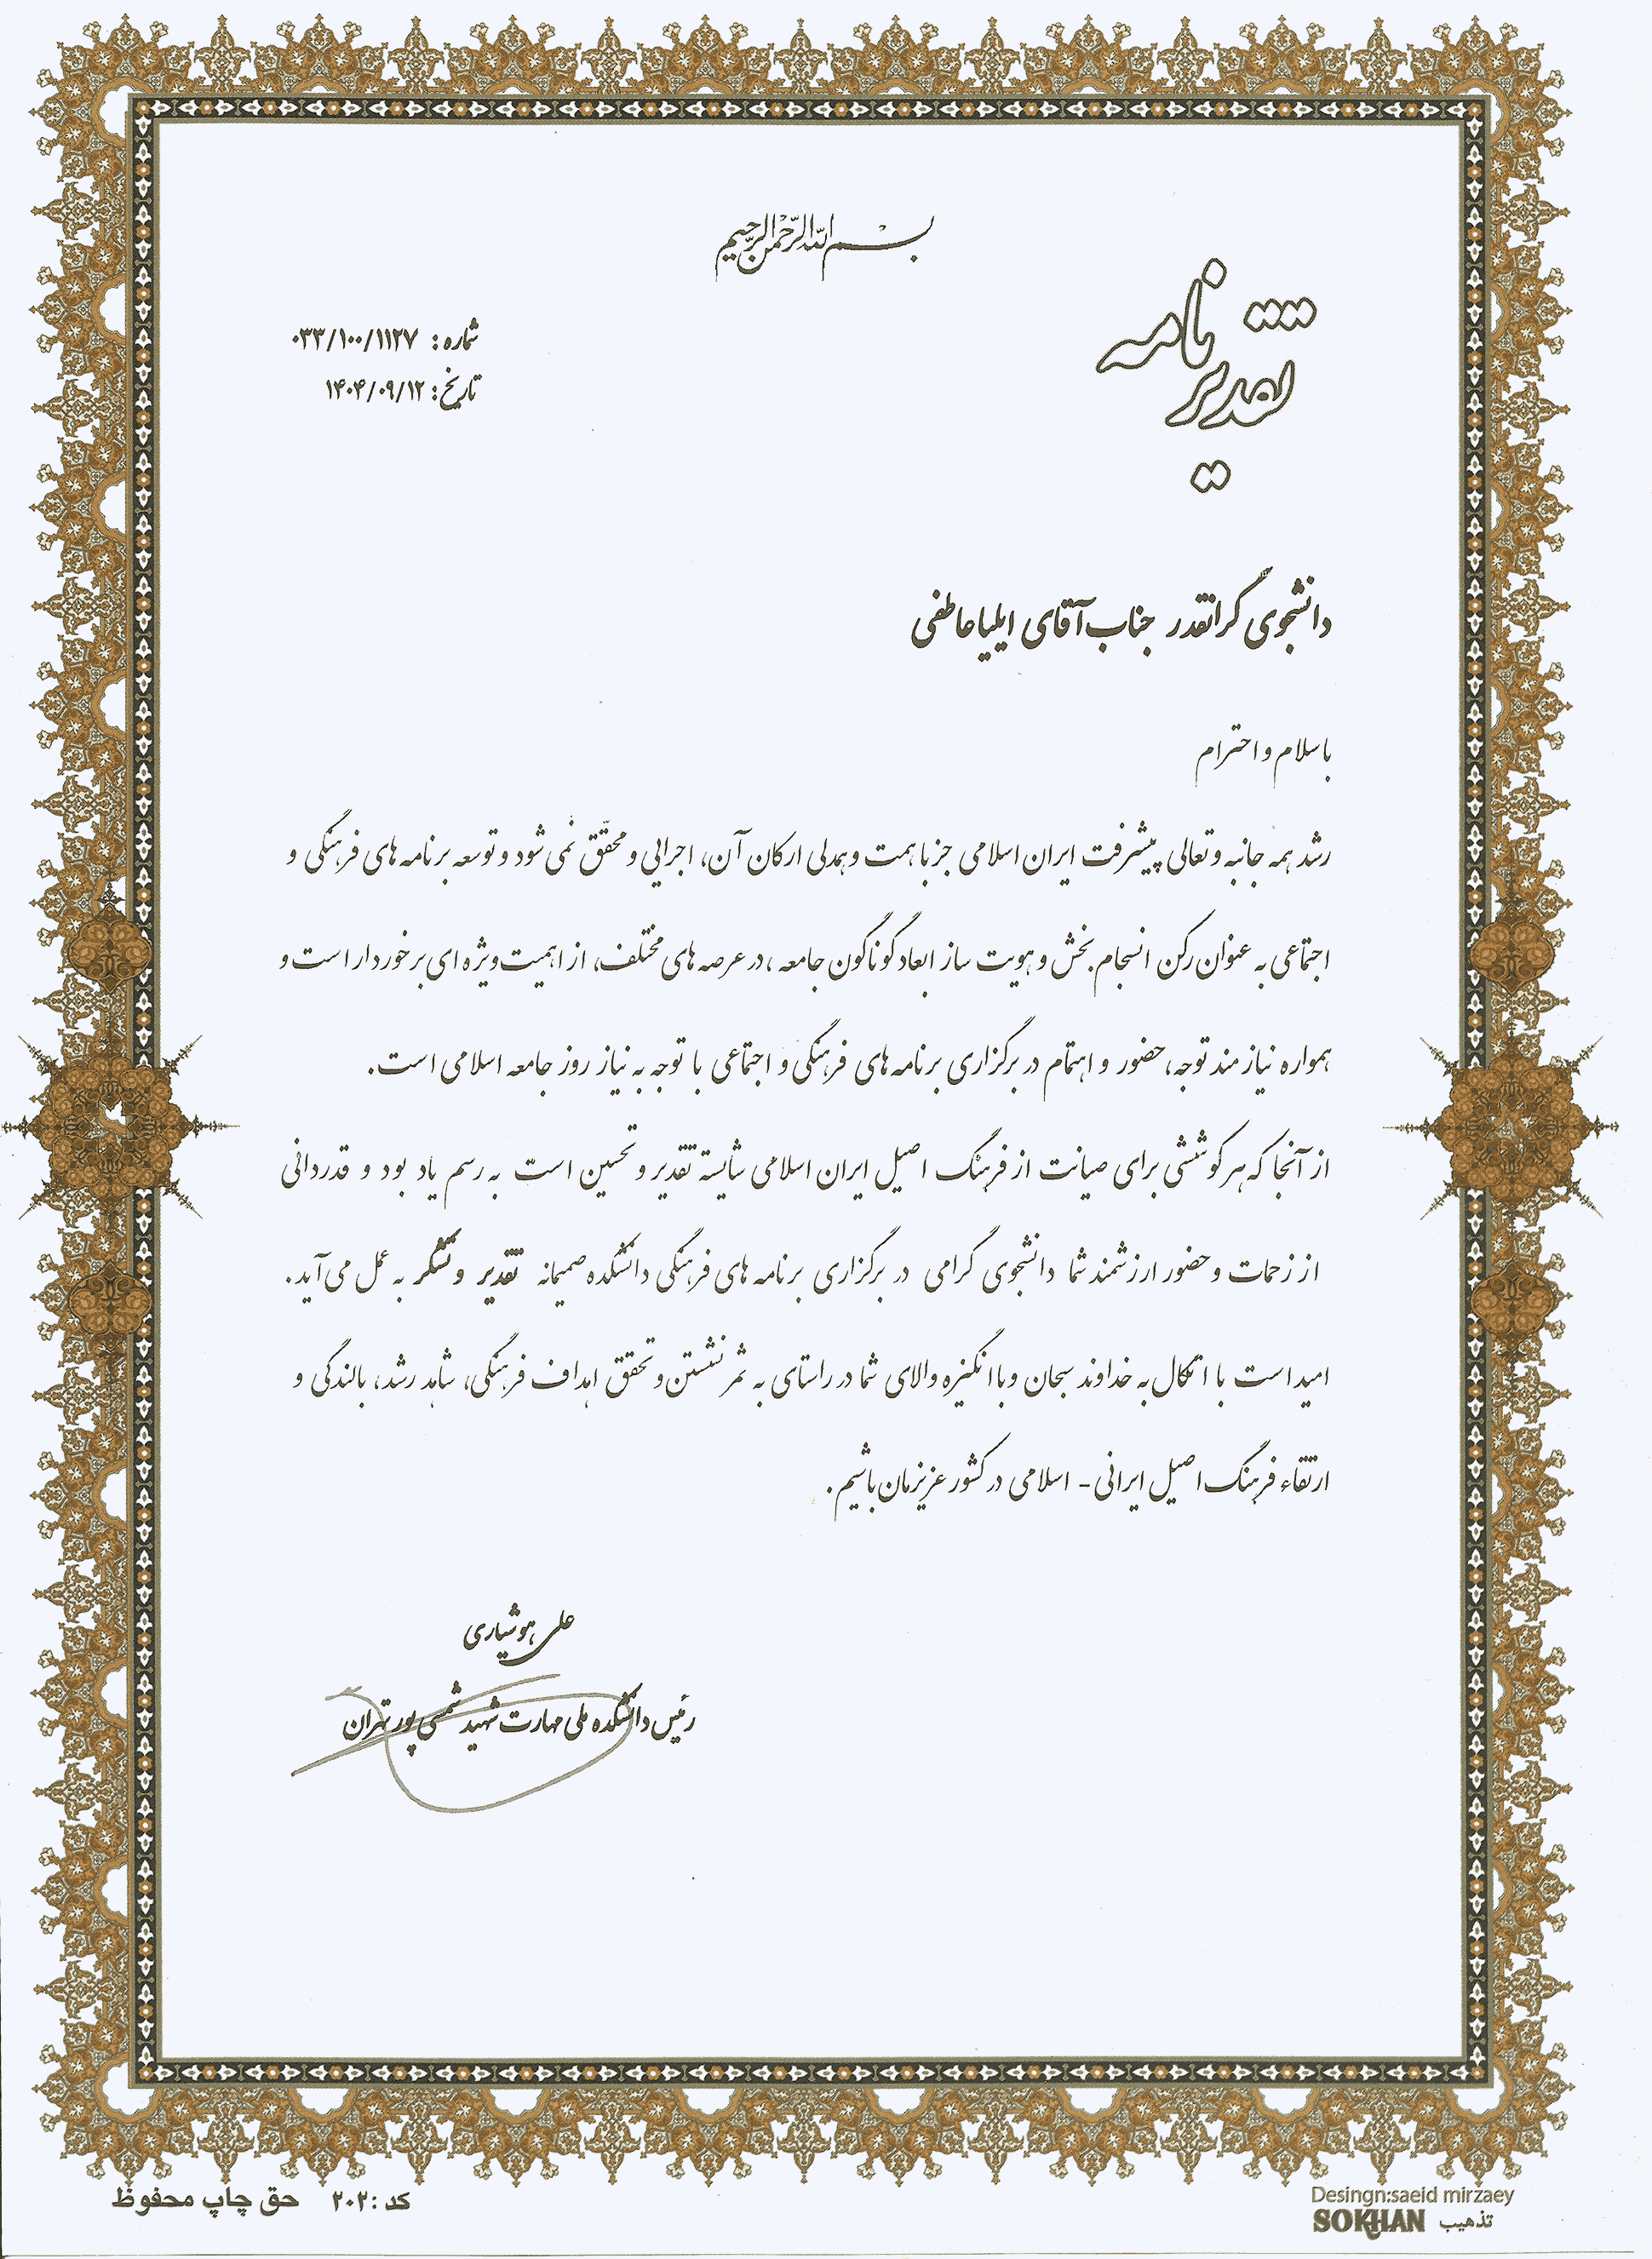 بسم الله الرحمن الرحیم
تقدیرنامه
شماره: ۰۳۳/۱۰۰/۱۱۲۷
تاریخ: ۱۴۰۴/۰۹/۱۲
دانشجوی گرانقدر جناب آقای ایلیا عاطفی
با سلام و احترام
رشد همه جانبه و تعالی پیشرفت ایران اسلامی جز با همت و همدلی ارکان آن، اجرایی و محقّق نمی شود و توسعه برنامه های فرهنگی و
اجتماعی به عنوان رکن انسجام بخش و هویت ساز ابعاد گوناگون جامعه، در عرصه های مختلف، از اهمیت ویژه ای برخوردار است و
همواره نیازمند توجه، حضور و اهتمام در برگزاری برنامه های فرهنگی و اجتماعی با توجه به نیاز روز جامعه اسلامی است.
از آنجا که هر کوششی برای صیانت از فرهنگ اصیل ایران اسلامی شایسته تقدیر و تحسین است به رسم یاد بود و قدردانی
از زحمات و حضور ارزشمند شما دانشجوی گرامی در برگزاری برنامه های فرهنگی دانشکده صمیمانه تقدیر و تشکر به عمل می آید.
امید است با اتکال به خداوند سبحان و با انگیزه والای شما در راستای به ثمر نشستن و تحقق اهداف فرهنگی، شاهد رشد، بالندگی و
ارتقاء فرهنگ اصیل ایرانی - اسلامی در کشور عزیزمان باشیم.
علی هوشیاری
رئیس دانشکده ملی مهارت شهید شمسی پور تهران
حق چاپ محفوظ کد: ۲۰۲
Desingn:saeid mirzaey
SOKHAN تذهیب